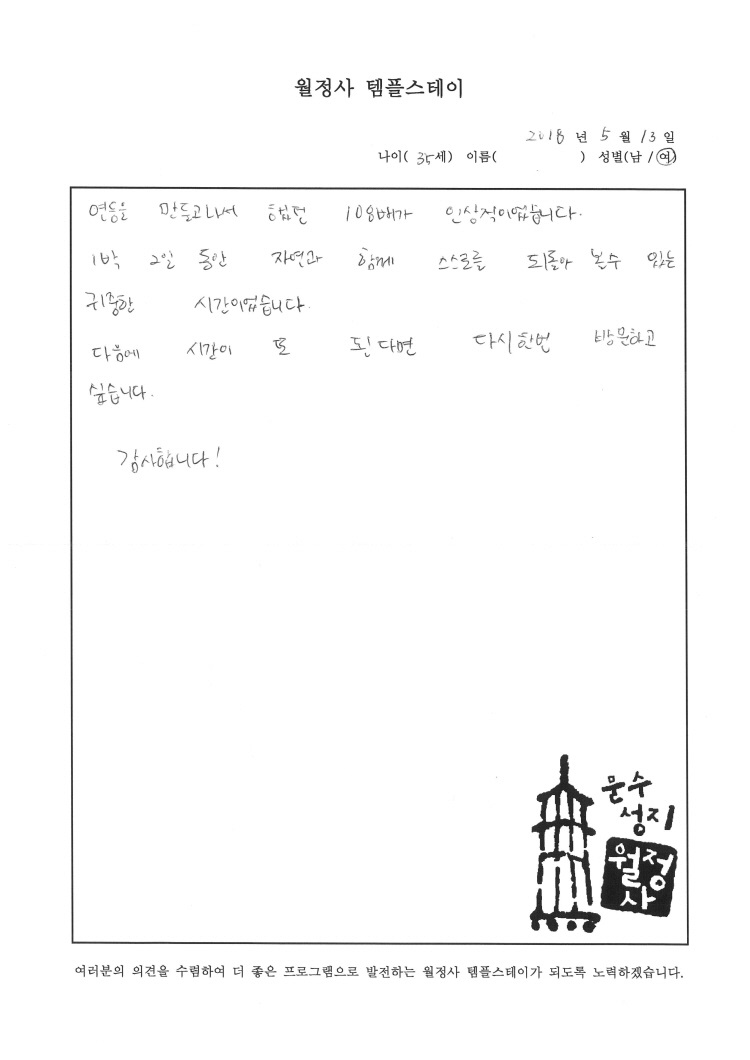 월정사 템플스테이
2018 년 5 월 13 일
나이( 35세) 이름( ) 성별(남 / 여)
연등을 만들고나서 했던 108배가 인상적이었습니다.
1박 2일 동안 자연과 함께 스스로를 되돌아 볼수 있는
귀중한 시간이었습니다.
다음에 시간이 또 된다면 다시한번 방문하고
싶습니다.
감사합니다!
문수
성지
월정
사
여러분의 의견을 수렴하여 더 좋은 프로그램으로 발전하는 월정사 템플스테이가 되도록 노력하겠습니다.